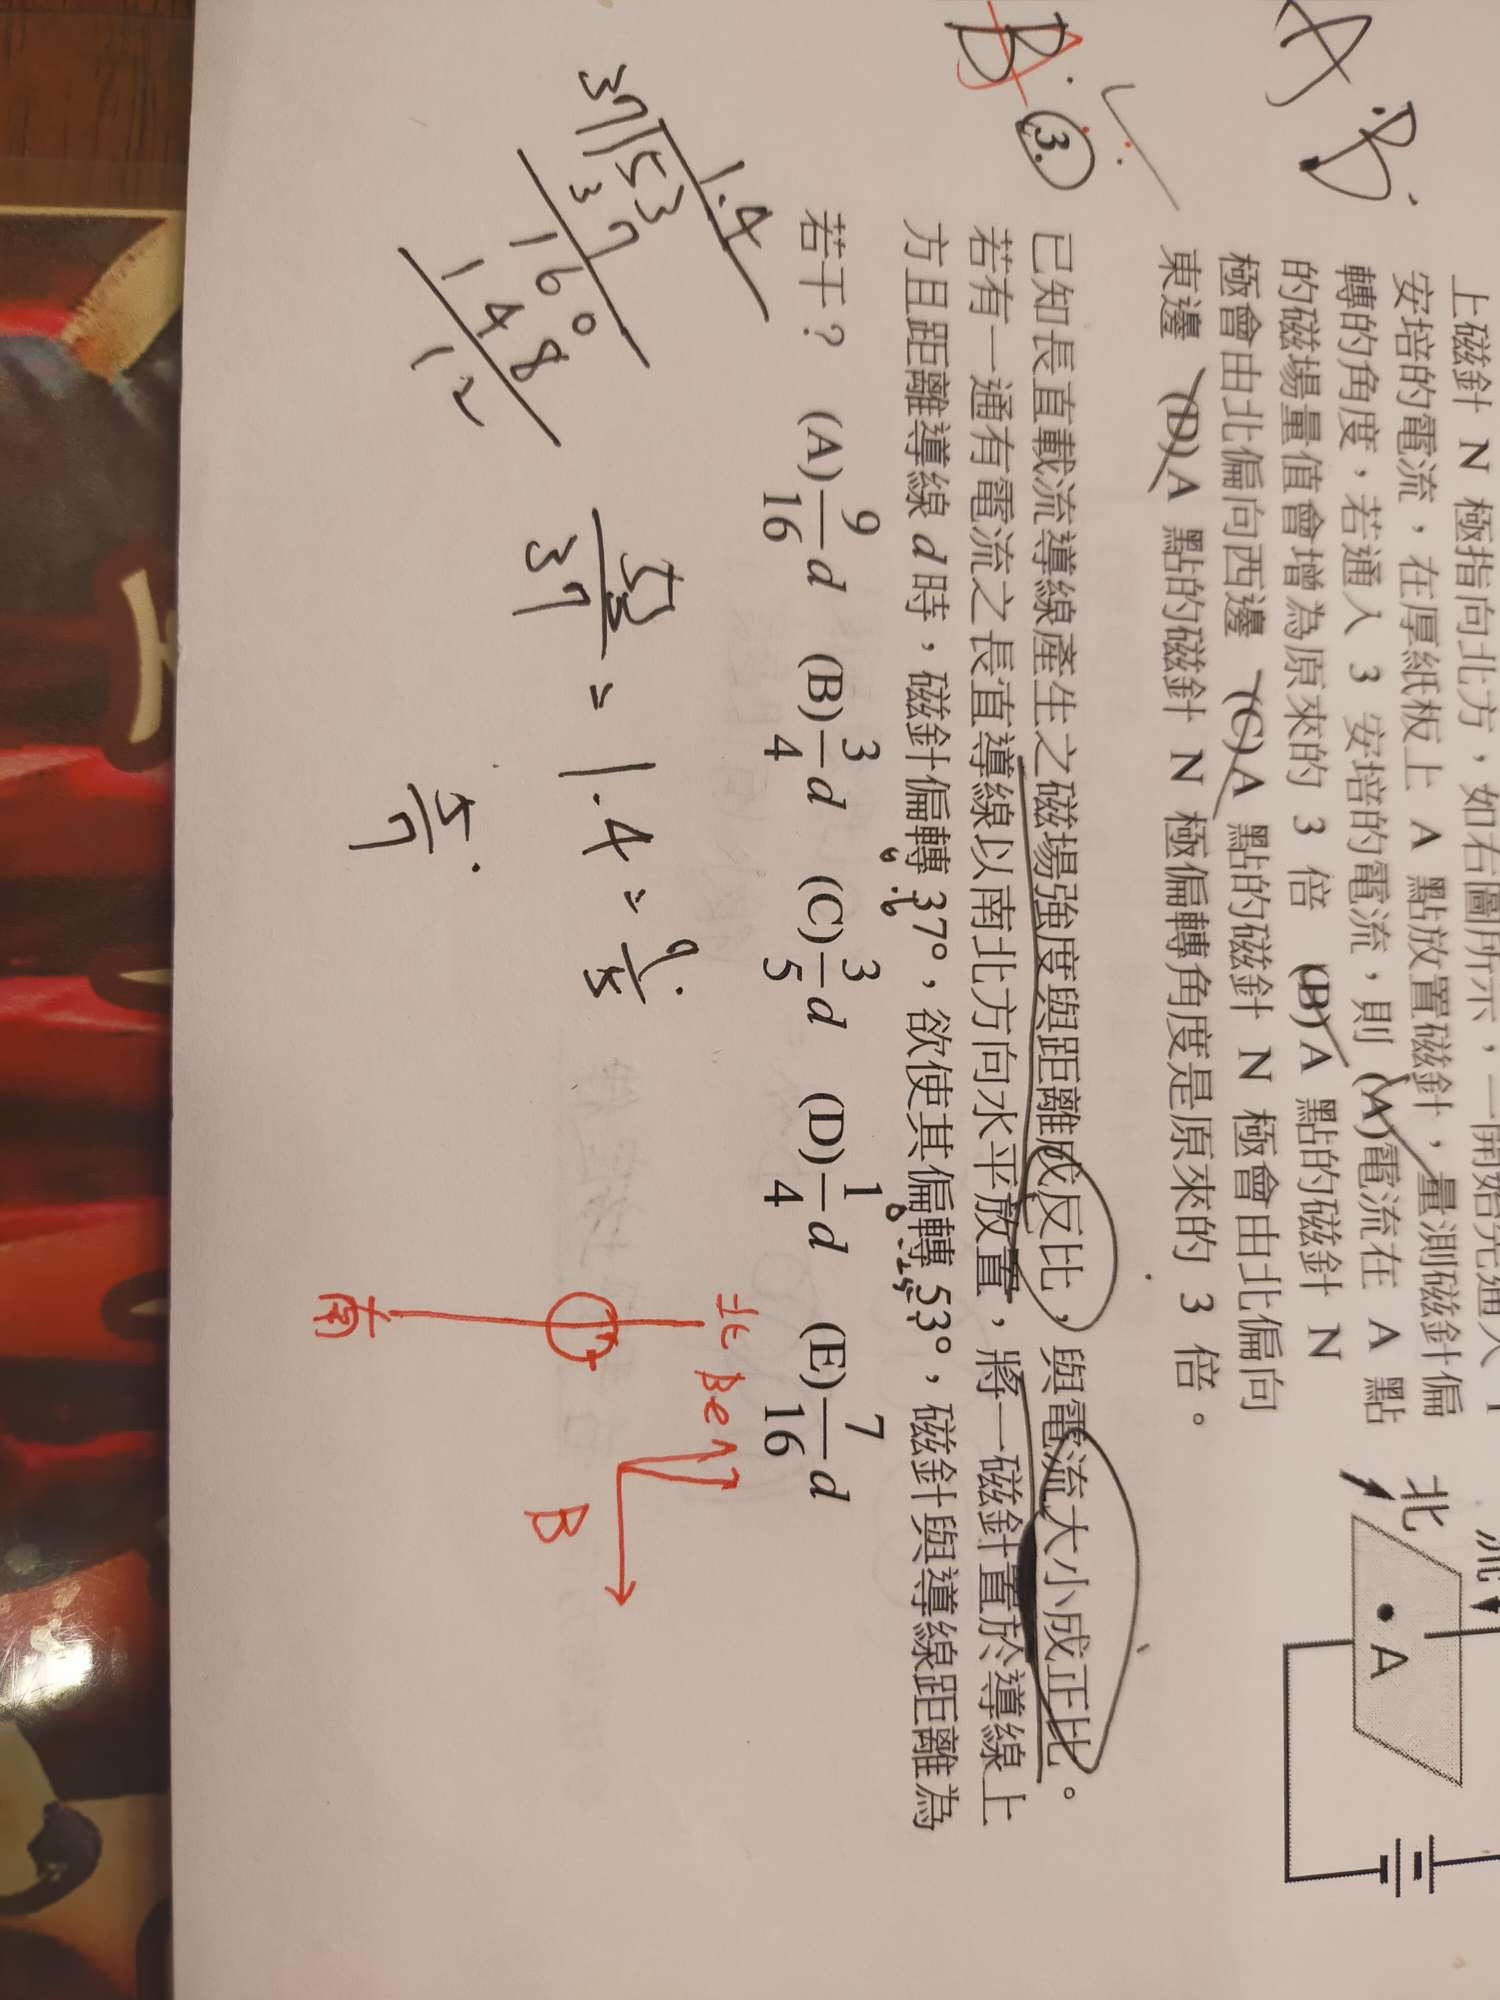 A.B.
上磁針 N 極指向北方，如右圖所示，一開始先通入 1
安培的電流，在厚紙板上 A 點放置磁針，量測磁針偏
轉的角度，若通入 3 安培的電流，則 (A)電流在 A 點
的磁場量值會增為原來的 3 倍 (B)A 點的磁針 N
極會由北偏向西邊 (C)A 點的磁針 N 極會由北偏向
東邊 (D)A 點的磁針 N 極偏轉角度是原來的 3 倍。
流
北
A
B.
A
3.
已知長直載流導線產生之磁場強度與距離成反比，與電流大小成正比。
若有一通有電流之長直導線以南北方向水平放置，將一磁針置於導線上
方且距離導線 d 時，磁針偏轉 37°，欲使其偏轉 53°，磁針與導線距離為
若干？ (A) 9/16 d (B) 3/4 d (C) 3/5 d (D) 1/4 d (E) 7/16 d
1.4
37 53
37
160
148
12
53/37 = 1.4 =
5/7.
北
南
Be
B